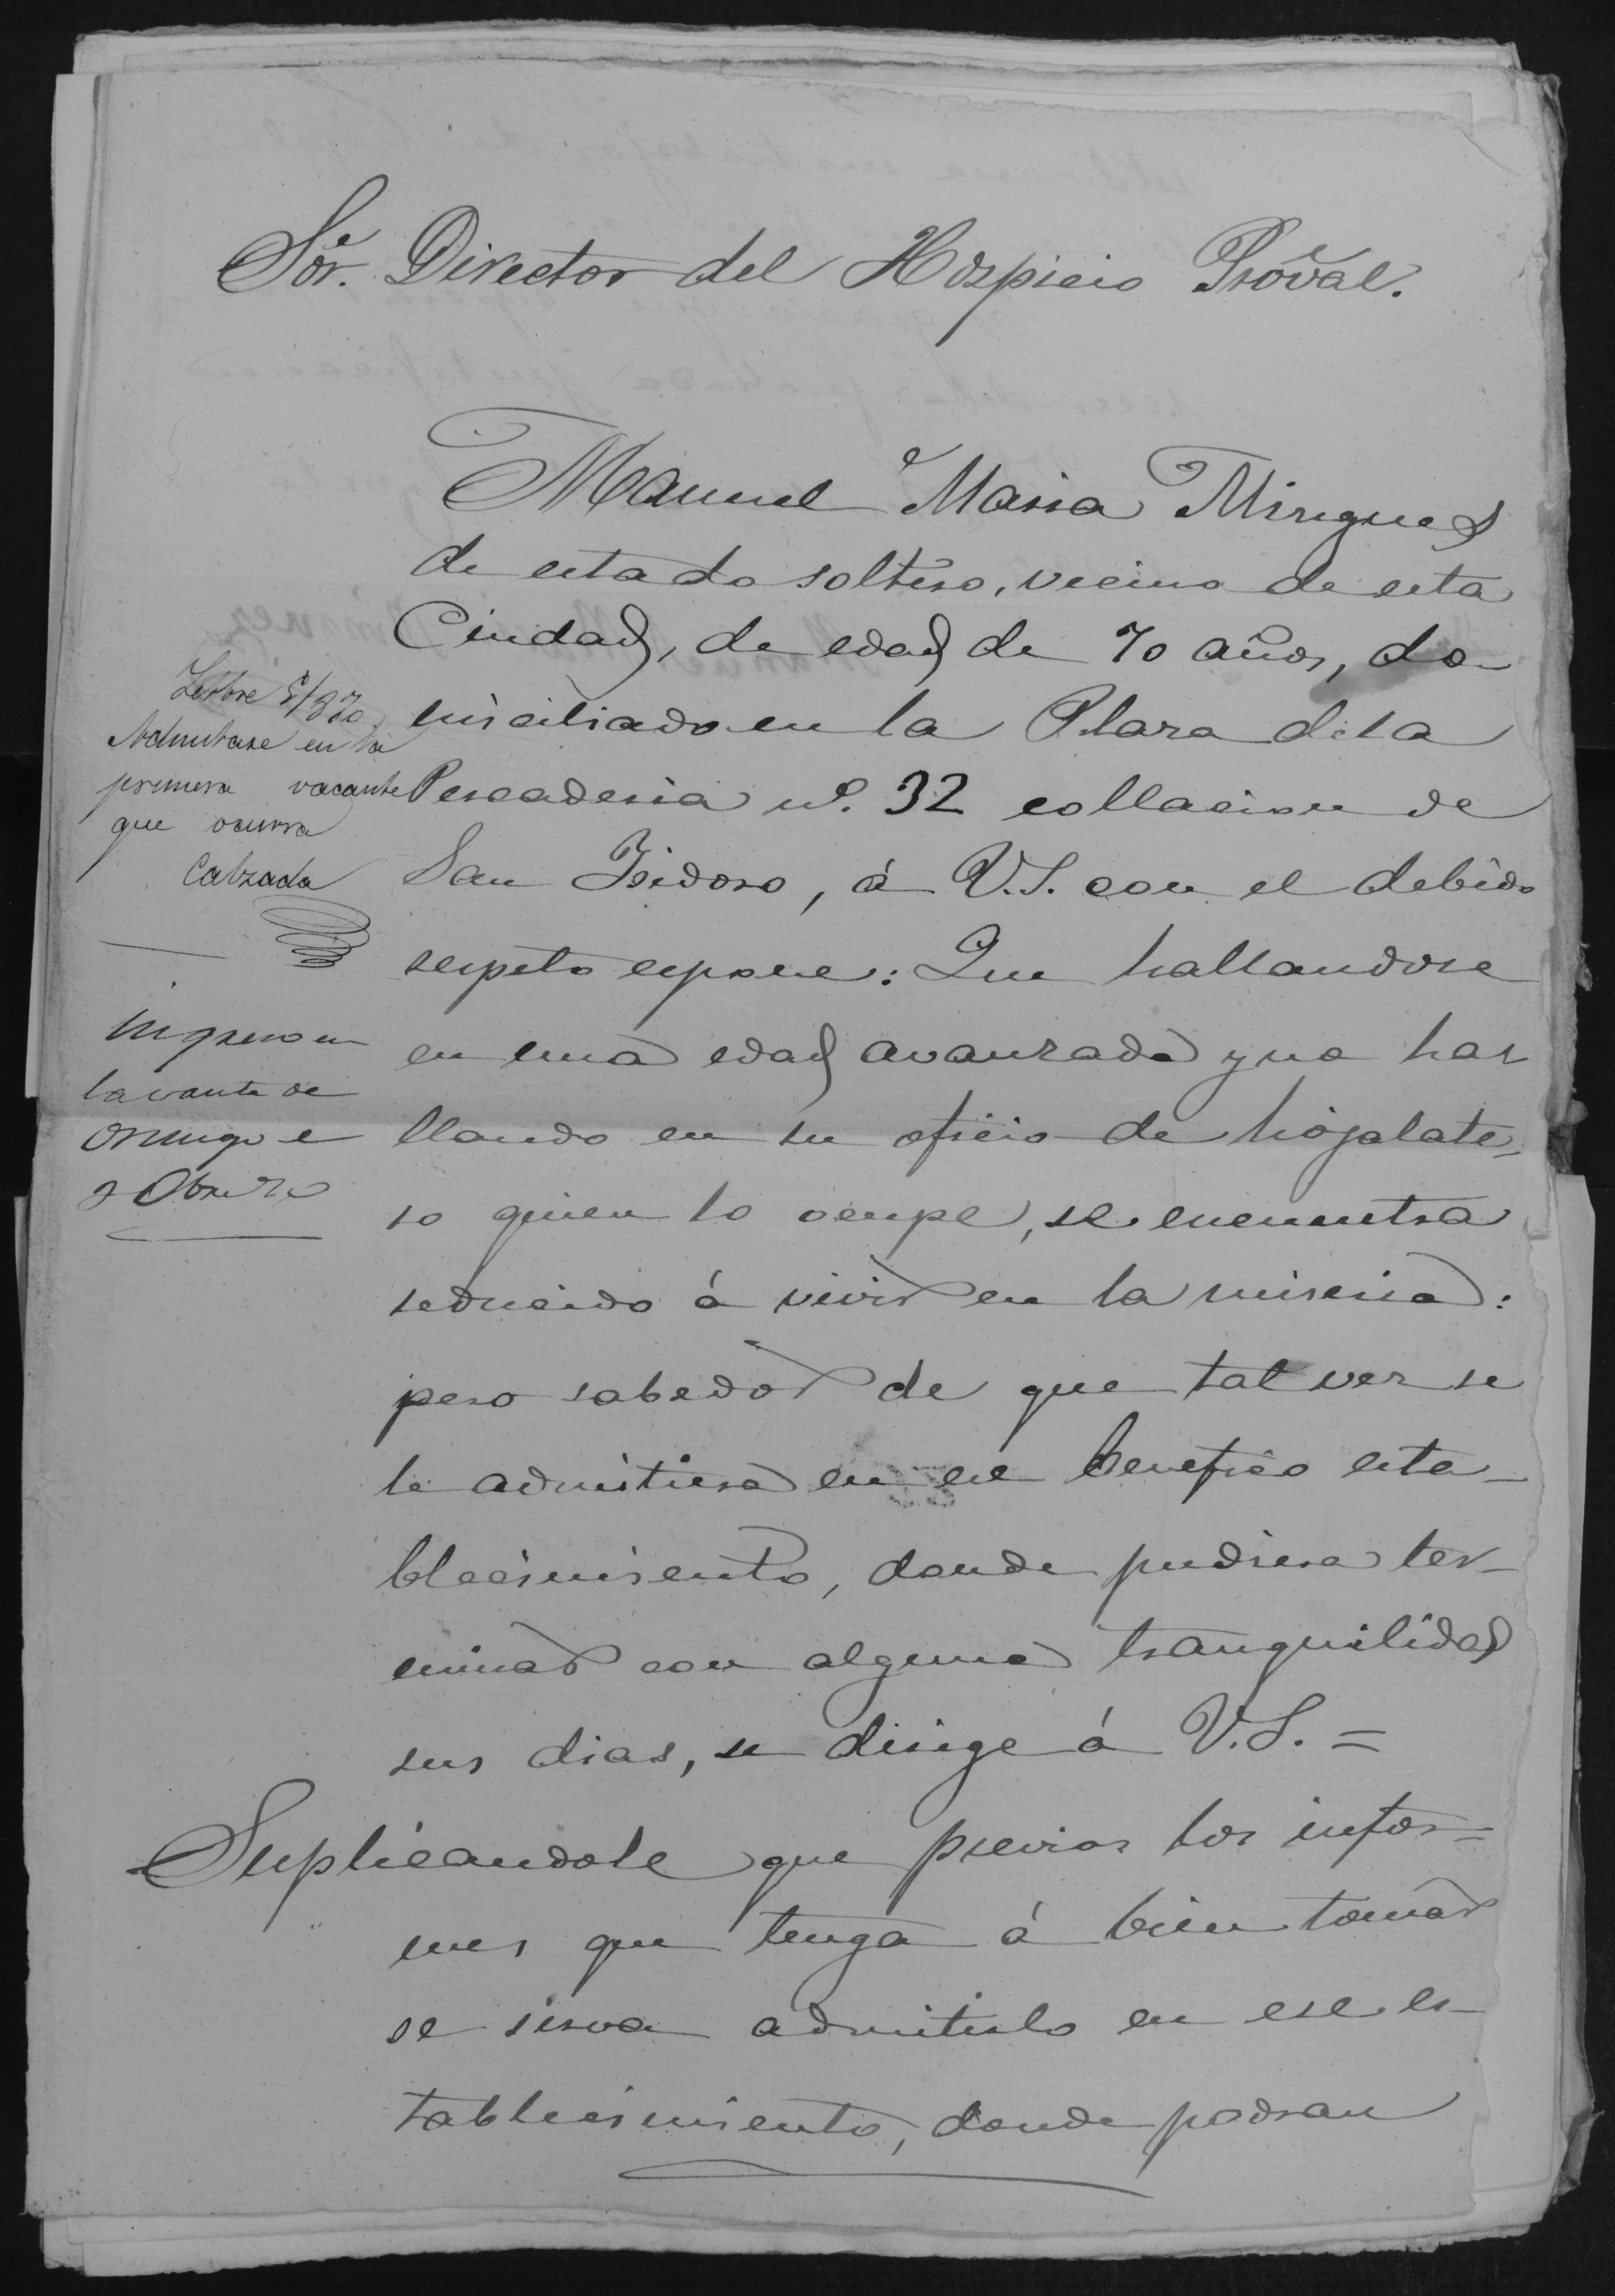 Sor. Director del Hospicio Proval.
Manuel Maria Minguez
de estado soltero, vecino de esta
Ciudad, de edad de 70 años, do
miciliado en la Plaza de la
Pescaderia nº. 32 collacion de
San Isidoro, á V.S. con el debido
respeto espone: Que hallandose
en una edad avanzada y no ha
llando en su oficio de hojalate-
ro quien lo ocupe, se encuentra
reducido á vivir en la miseria:
pero sabedor de que tal vez se
le admitiera en ese benefico esta-
blecimiento, donde pudiera ter-
minar con alguna tranquilidad
sus dias, se dirige á V.S. =
Suplicandole que previos los infor=
mes que tenga á bien tomar
se sirva admitirlo en ese es-
tablecimiento, donde podran
Admitase en la
primera vacante
que ocurra
Calzada
Ingreso en
la vacante de